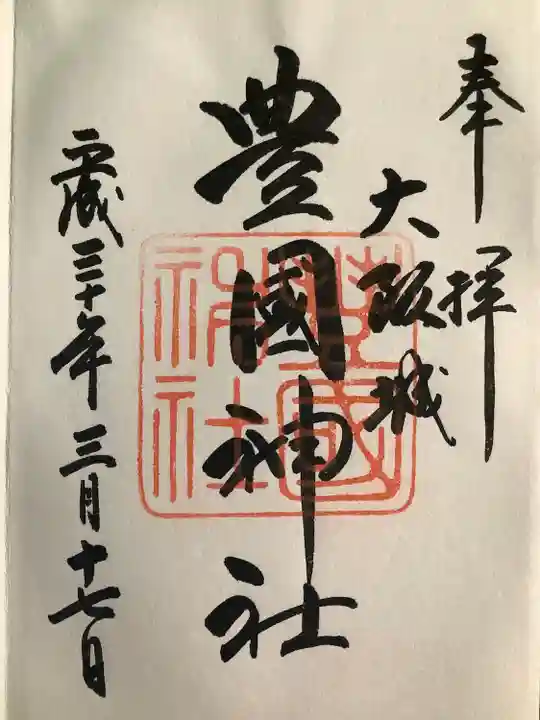 奉拝
大阪城
豊國神社
平成三十年三月十七日
豊國神社